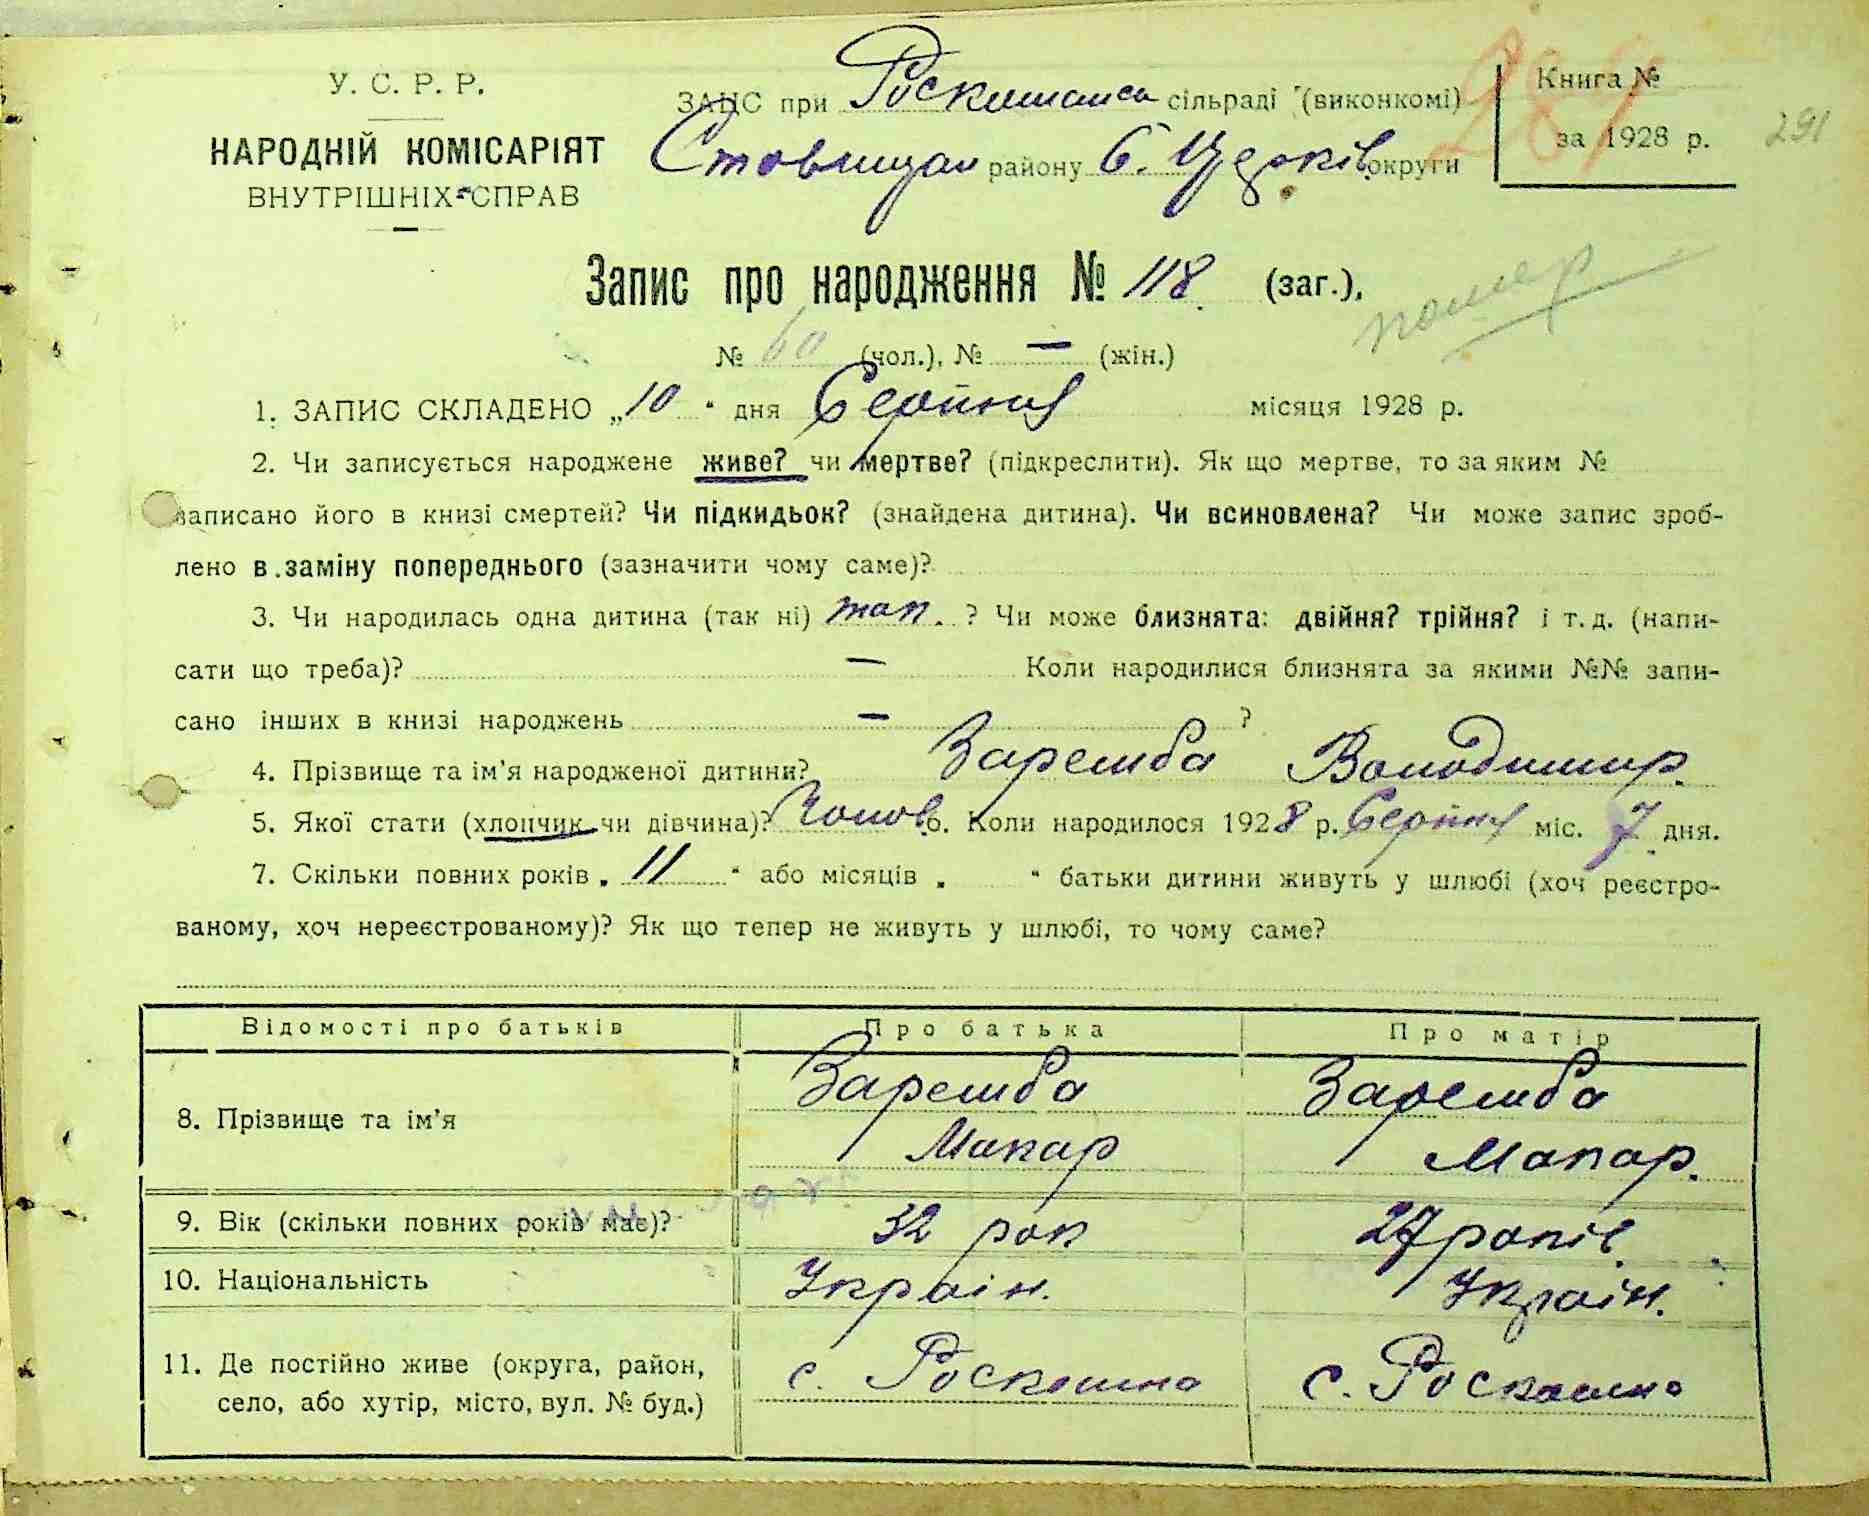 У. С. Р. Р.
НАРОДНІЙ КОМІСАРІЯТ
ВНУТРІШНІХ СПРАВ
ЗАЦС при сільраді (виконкомі)
району Б. Церків округи
Книга №
за 1928 р.
291
Запис про народження № 118 (заг.),
помер
№ 60 (чол.), № — (жін.)
1. ЗАПИС СКЛАДЕНО „10“ дня Серпня місяця 1928 р.
2. Чи записується народжене живе? чи мертве? (підкреслити). Як що мертве, то за яким №
записано його в книзі смертей? Чи підкидьок? (знайдена дитина). Чи всиновлена? Чи може запис зроб-
лено в заміну попереднього (зазначити чому саме)?
3. Чи народилась одна дитина (так ні) так. ? Чи може близнята: двійня? трійня? і т. д. (напи-
сати що треба)? — Коли народилися близнята за якими №№ запи-
сано інших в книзі народжень — ?
4. Прізвище та ім’я народженої дитини? Заремба Володимир.
5. Якої стати (хлопчик чи дівчина)? Чолов. 6. Коли народилося 1928 р. Серпня міс. 7 дня.
7. Скільки повних років „11“ або місяців „ “ батьки дитини живуть у шлюбі (хоч реєстро-
ваному, хоч нереєстрованому)? Як що тепер не живуть у шлюбі, то чому саме?
Відомості про батьків Про батька Про матір
8. Прізвище та ім’я Заремба Заремба
Макар Макар.
9. Вік (скільки повних років має)? 32 рок 27 років
10. Національність Україн. Україн.
11. Де постійно живе (округа, район, с. Роскошна с. Роскошна
село, або хутір, місто, вул. № буд.)